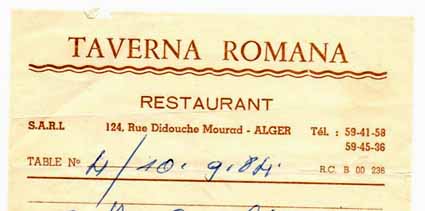 TAVERNA ROMANA
RESTAURANT
S.A.R.L 124, Rue Didouche Mourad - ALGER Tél. : 59-41-58
59-45-36
TABLE N° 4/10.9.84 R.C. B 00 236